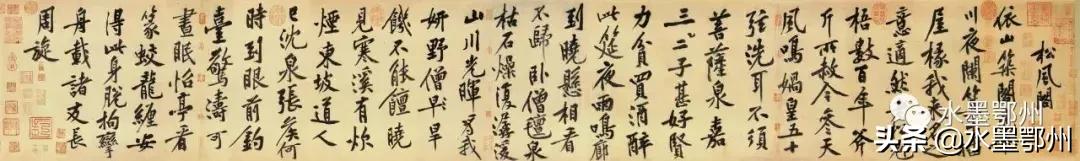 松風閣
依山築閣
川夜闌箕
屋椽我來
意適然
梧數百年斧
斤所赦今參天
風鳴媧皇五十
弦洗耳不須
菩薩泉嘉
三二子甚好賢
力貧買酒醉
此筵夜雨鳴廊
到曉懸相看
不歸臥僧氈泉
枯石燥復潺湲
山川光暉為我
妍野僧早旱
饑不能饘曉
見寒溪有炊
煙東坡道人
已沈泉張侯何
時到眼前釣
臺驚濤可
晝眠怡亭看
篆蛟龍纏安
得此身脫拘攣
舟載諸友長
周旋
水墨鄂州
头条@水墨鄂州